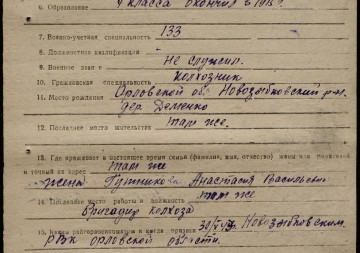 6. Образование 4 класса окончил в 1913 г.
7. Военно-учетная специальность 133
8. Должностная квалификация
9. Военное звание Не служил.
10. Гражданская специальность Колхозник
11. Место рождения Орловской обл. Новозыбковский р-н
дер Деменко
12. Последнее место жительства там же.
13. Где проживает в настоящее время семья (фамилия, имя, отчество) жены или родителей
и точный их адрес там же
жена Путникова Анастасия Васильевн
14. Последнее место работы и должность там же
Бригадир колхоза
15. Каким райвоенкоматом и когда призван Новозыбковским
РВК Орловской области.